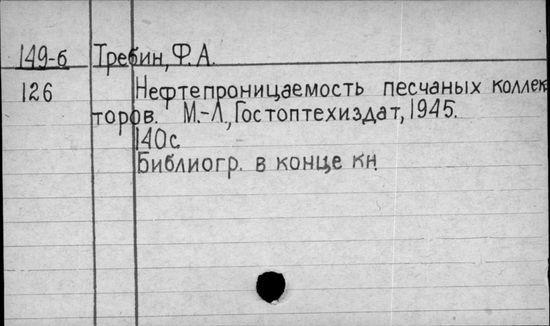 149-б Требин, Ф.А.
126 Нефтепроницаемость песчаных коллек-
торов. М.-Л., Гостоптехиздат, 1945.
140с.
Библиогр. в конце кн.